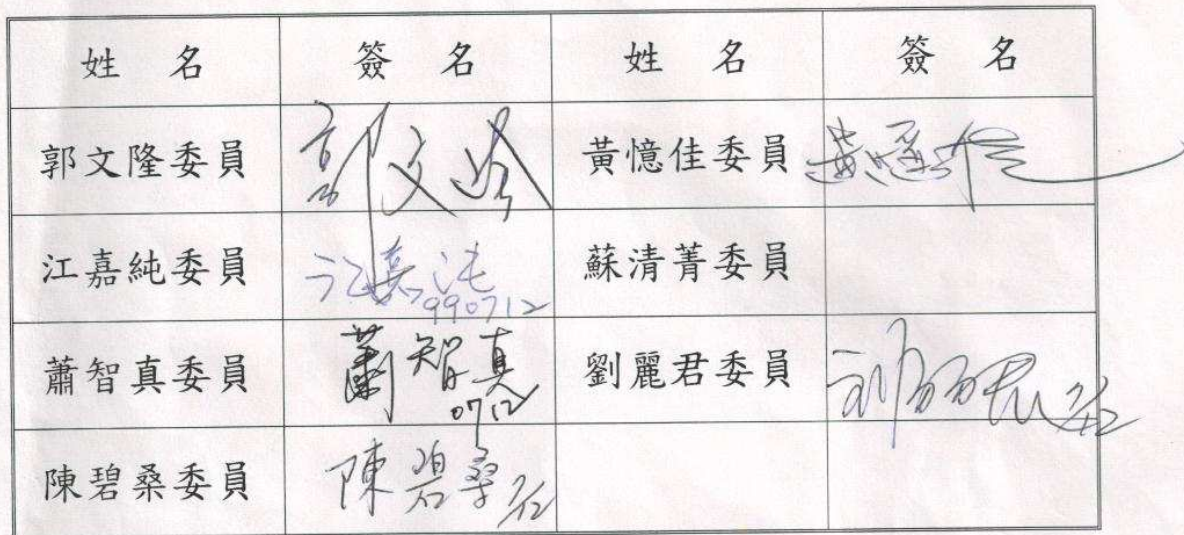 姓 名 簽 名 姓 名 簽 名
郭文隆委員 郭文隆 黃憶佳委員 黃憶佳
江嘉純委員 江嘉純 990712 蘇清菁委員
蕭智真委員 蕭智真 0712 劉麗君委員 劉麗君 7/12
陳碧桑委員 陳碧桑 7/12